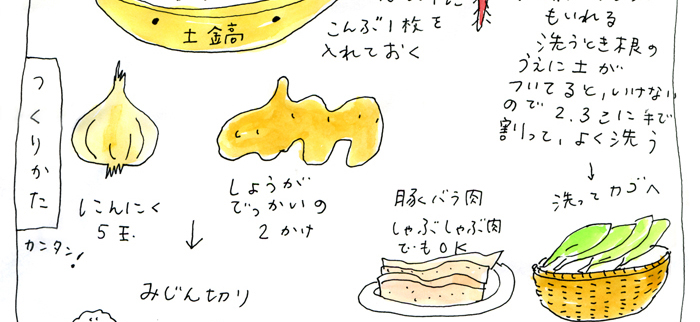 土鍋
こんぶ1枚を
入れておく
もいれる
洗うとき根の
うえに土が
ついてると、いけない
ので2.3こに手で
割って、よく洗う
洗ってカゴへ
つくりかた
カンタン!
にんにく
5玉
しょうが
でっかいの
2かけ
みじん切り
豚バラ肉
しゃぶしゃぶ肉
でもOK